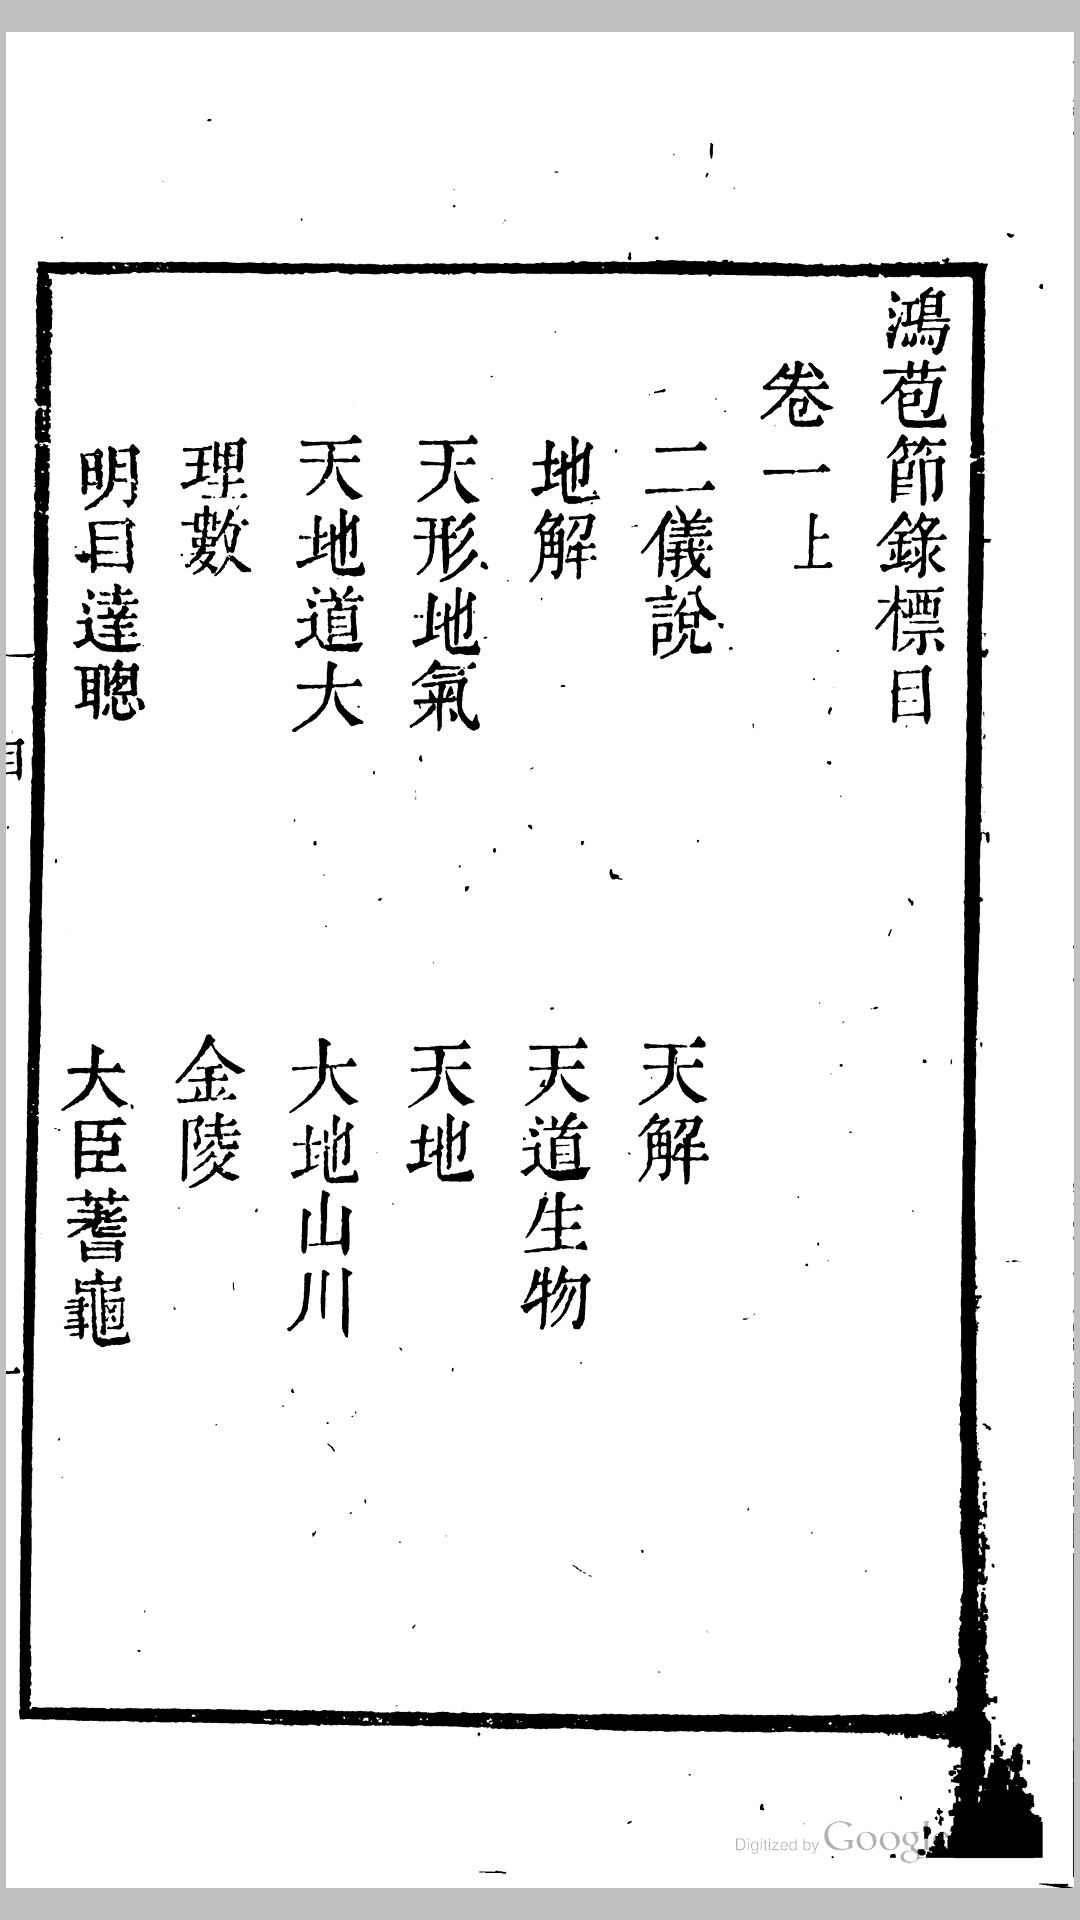 鴻苞節錄標目
卷一上
二儀說　天解
地解　天道生物
天形地氣　天地
天地道大　大地山川
理數　金陵
明目達聰　大臣蓍龜
目
一
Digitized by Google